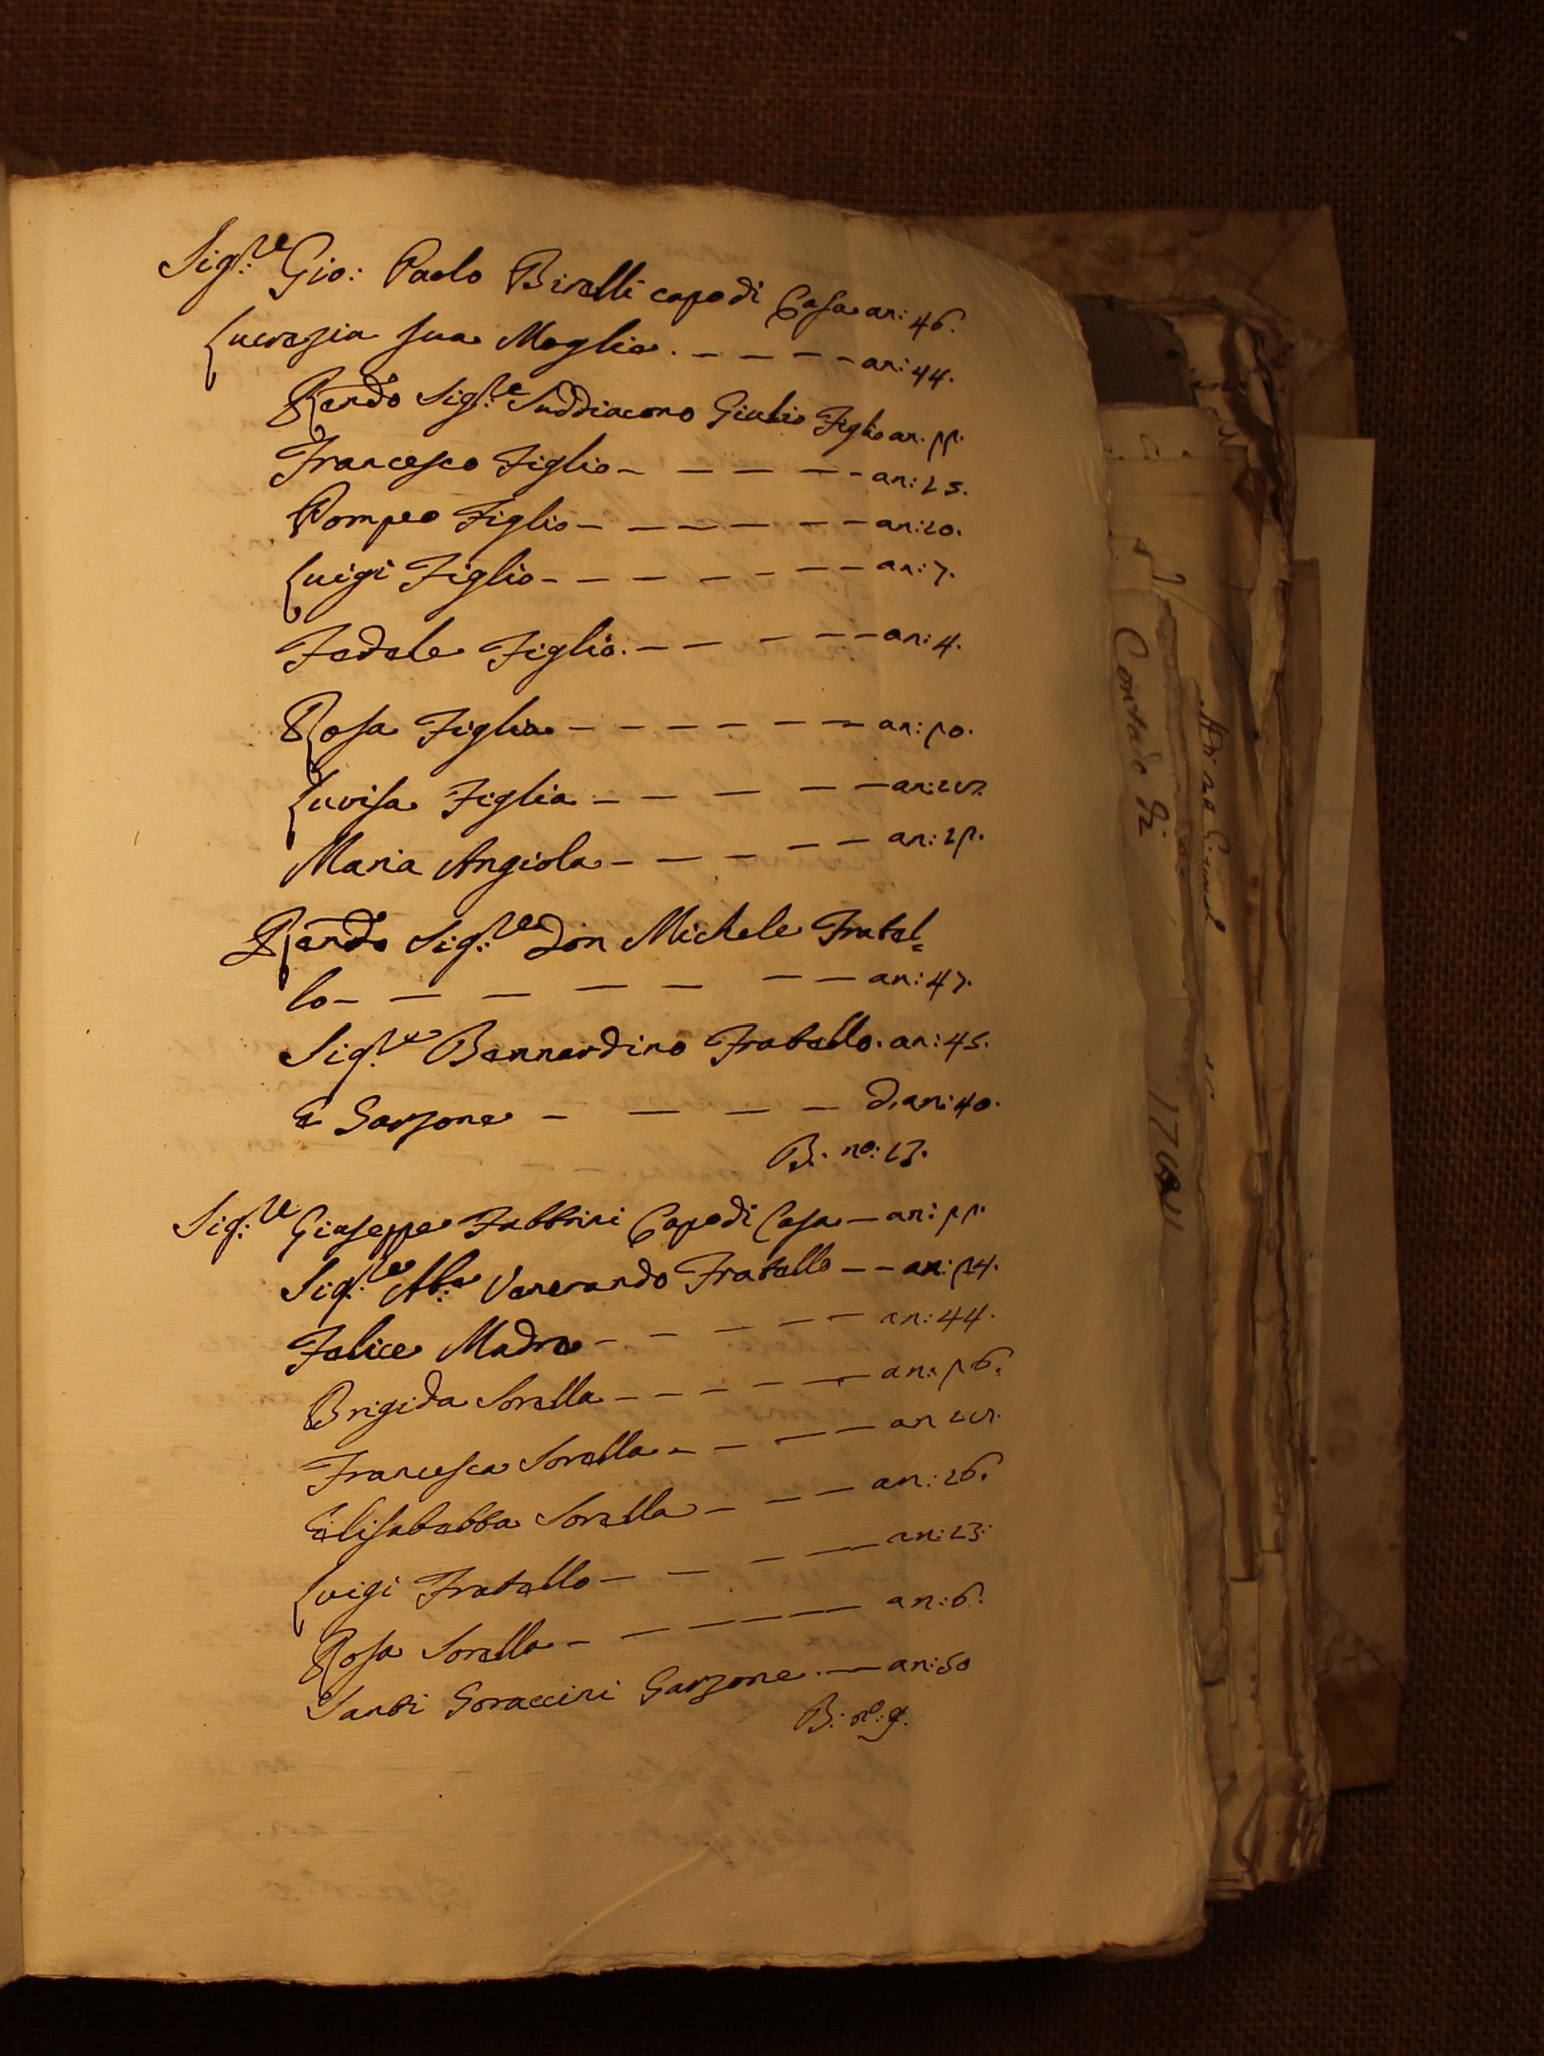 Sig.re Gio: Paolo Birelli capo di Casa an: 46.
Lucrezia sua Moglie. – – – – an: 44.
Rendo Sig.re Suddiacono Giulio Figlio an.
Francesco Figlio – – – – – an: 25.
Pompeo Figlio – – – – – – an: 20.
Luigi Figlio – – – – – – – an: 7.
Fedele Figlio. – – – – – an: 4.
Rosa Figlia – – – – – – – an:
Luvisa Figlia – – – – – an:
Maria Angiola – – – – – an:
Rendo Sig.re Don Michele Fratel=
lo – – – – – – – an: 47.
Sig.re Bernardino Fratello. an: 45.
E Garzone – – – – d'an: 40.
B. no: 13.
Sig.re Giuseppe Fabbrini Capo di Casa – an:
Sig.re Ab.e Venerando Fratello – – an:
Felice Madre – – – – – an: 44.
Brigida Sorella – – – – – – an:
Francesca Sorella – – – – an
Elisabetta Sorella – – – an: 26.
Luigi Fratello – – – – an: 23.
Rosa Sorella – – – – – an: 6.
Santi Goraccini Garzone. – an: 50
B: no: 9.
Contado di